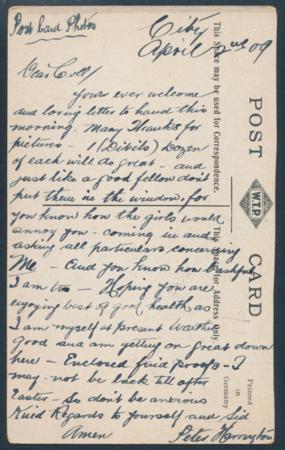 Post Card Photos
City
April 2nd 09
Dear Coll/
Yours ever welcome
and loving letter to hand this
morning. Many Thanks for
pictures - 1 (Ditits) Dozen
of each will do great - and
just like a good fellow don't
put them in the window, for
you know how the girls would
annoy you - coming in and
asking all particulars concerning
Me - And you know how bashful
I am too - Hoping you are
enjoying best of good health as
I am myself at present Weather
Good and am getting on great down
here - Enclosed find proofs - I
may not be back till after
Easter - So don't be anxious
Kind Regards to yourself and Sid
Amen
Peter Harrington
This Space may be used for Correspondence.
This Space for Address Only.
POST CARD
W.T.P.
Printed
in
Germany